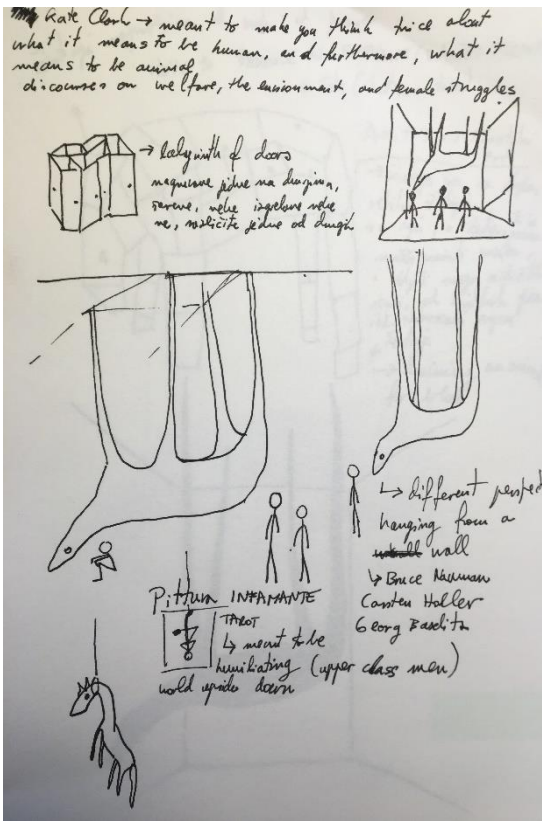 Kate Clark → meant to make you think twice about
what it means to be human, and furthermore, what it
means to be animal
discourses on welfare, the environment, and female struggles
→ labyrinth of doors
jedne na
neke neke
različite jedne od drugih
↳ different
hanging from a
wall
↳ Bruce Nauman
Carsten Holler
Georg Baselitz
Pittura INFAMANTE
TAROT
↳ meant to be
humiliating (upper class men)
world upside down